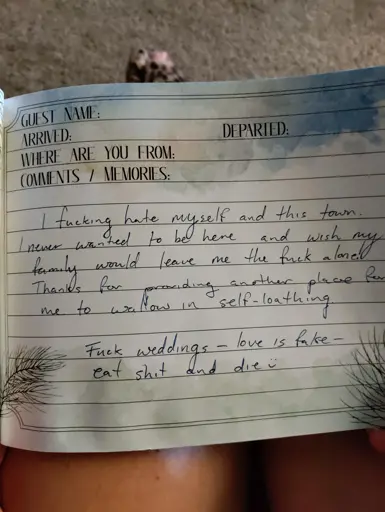 GUEST NAME:
ARRIVED: DEPARTED:
WHERE ARE YOU FROM:
COMMENTS / MEMORIES:
I fucking hate myself and this town.
I never wanted to be here and wish my
family would leave me the fuck alone.
Thanks for providing another place for
me to wallow in self-loathing
Fuck weddings – love is fake –
eat shit and die ü